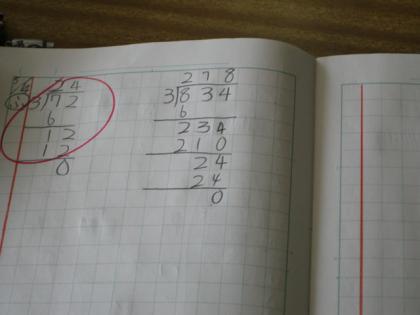 24
3)72
6
12
12
0
278
3)834
6
234
210
24
24
0